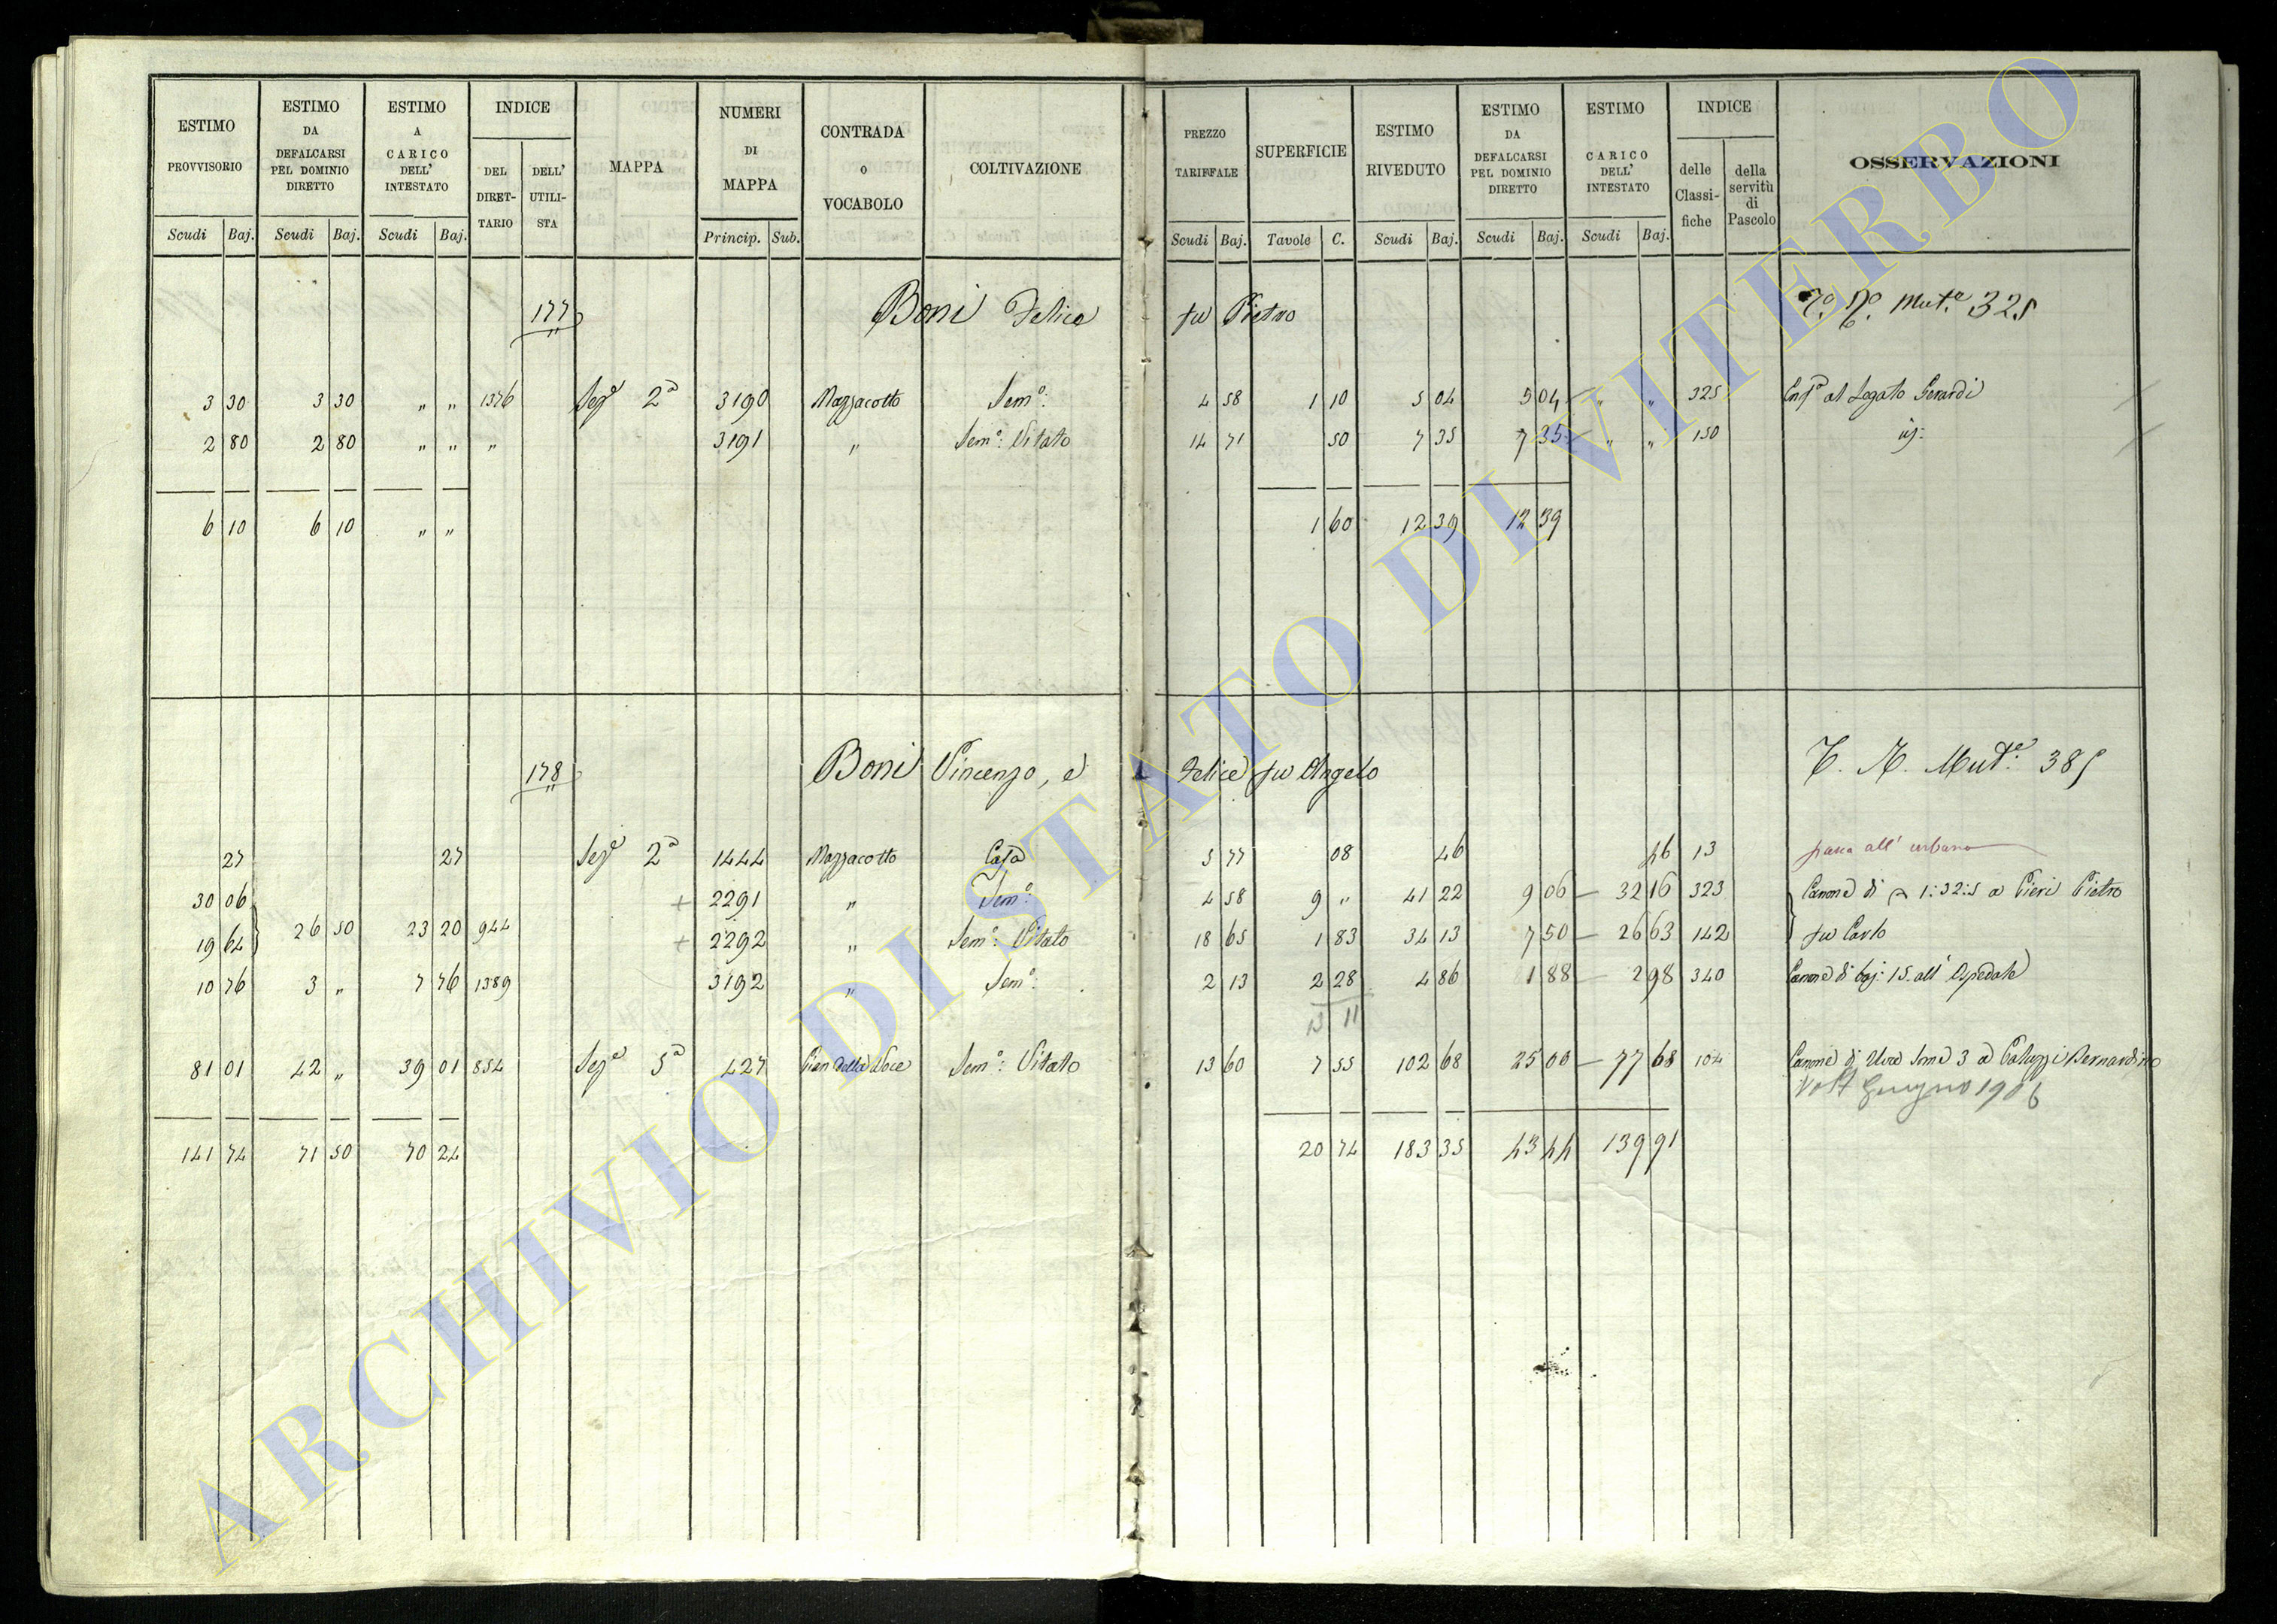 ESTIMO PROVVISORIO ESTIMO DA DEFALCARSI PEL DOMINIO DIRETTO ESTIMO A CARICO DELL' INTESTATO INDICE DEL DIRETTARIO DELL' UTILISTA MAPPA NUMERI DI MAPPA CONTRADA O VOCABOLO COLTIVAZIONE PREZZO TARIFFALE SUPERFICIE ESTIMO RIVEDUTO ESTIMO DA DEFALCARSI PEL DOMINIO DIRETTO ESTIMO A CARICO DELL' INTESTATO INDICE delle Classifiche della servitù di Pascolo OSSERVAZIONI
Scudi Baj. Scudi Baj. Scudi Baj. Princip. Sub. Scudi Baj. Tavole C. Scudi Baj. Scudi Baj. Scudi Baj.
177 Boni Felice fu Pietro Mut.e 325
3 30 3 30 " " 1376 Sez.e 2a 3190 Mazzacotto Sem.o: 4 58 1 10 5 04 5 04 " " 325 al Legato Gerardi
2 80 2 80 " " " 3191 " Sem.o: Vitato 14 71 50 7 35 7 35 " " 150
6 10 6 10 " " 1 60 12 39 12 39
178 Boni Vincenzo, e Felice fu Angelo T. N. Mut.e: 385
27 27 Sez.e 2a 1444 Mazzacotto Casa 5 77 08 46 46 13 passa all' urbano
30 06 + 2291 " Sem.o: 4 58 9 " 41 22 9 06 32 16 323 Canone di 1:32:5 a Pieri Pietro
19 64 26 50 23 20 944 + 2292 " Sem.o: Vitato 18 65 1 83 34 13 7 50 26 63 142 fu Carlo
10 76 3 " 7 76 1389 3192 " Sem.o: 2 13 2 28 4 86 1 88 2 98 340 Canone di baj: 15. all' Ospedale
13 11
81 01 42 " 39 01 854 Sez.e 5a 427 Pian della Noce Sem.o: Vitato 13 60 7 55 102 68 25 00 77 68 104 Canone di Uva Some 3 a Bernardino
Giugno 1906
141 74 71 50 70 24 20 74 183 35 43 44 139 91
ARCHIVIO DI STATO DI VITERBO